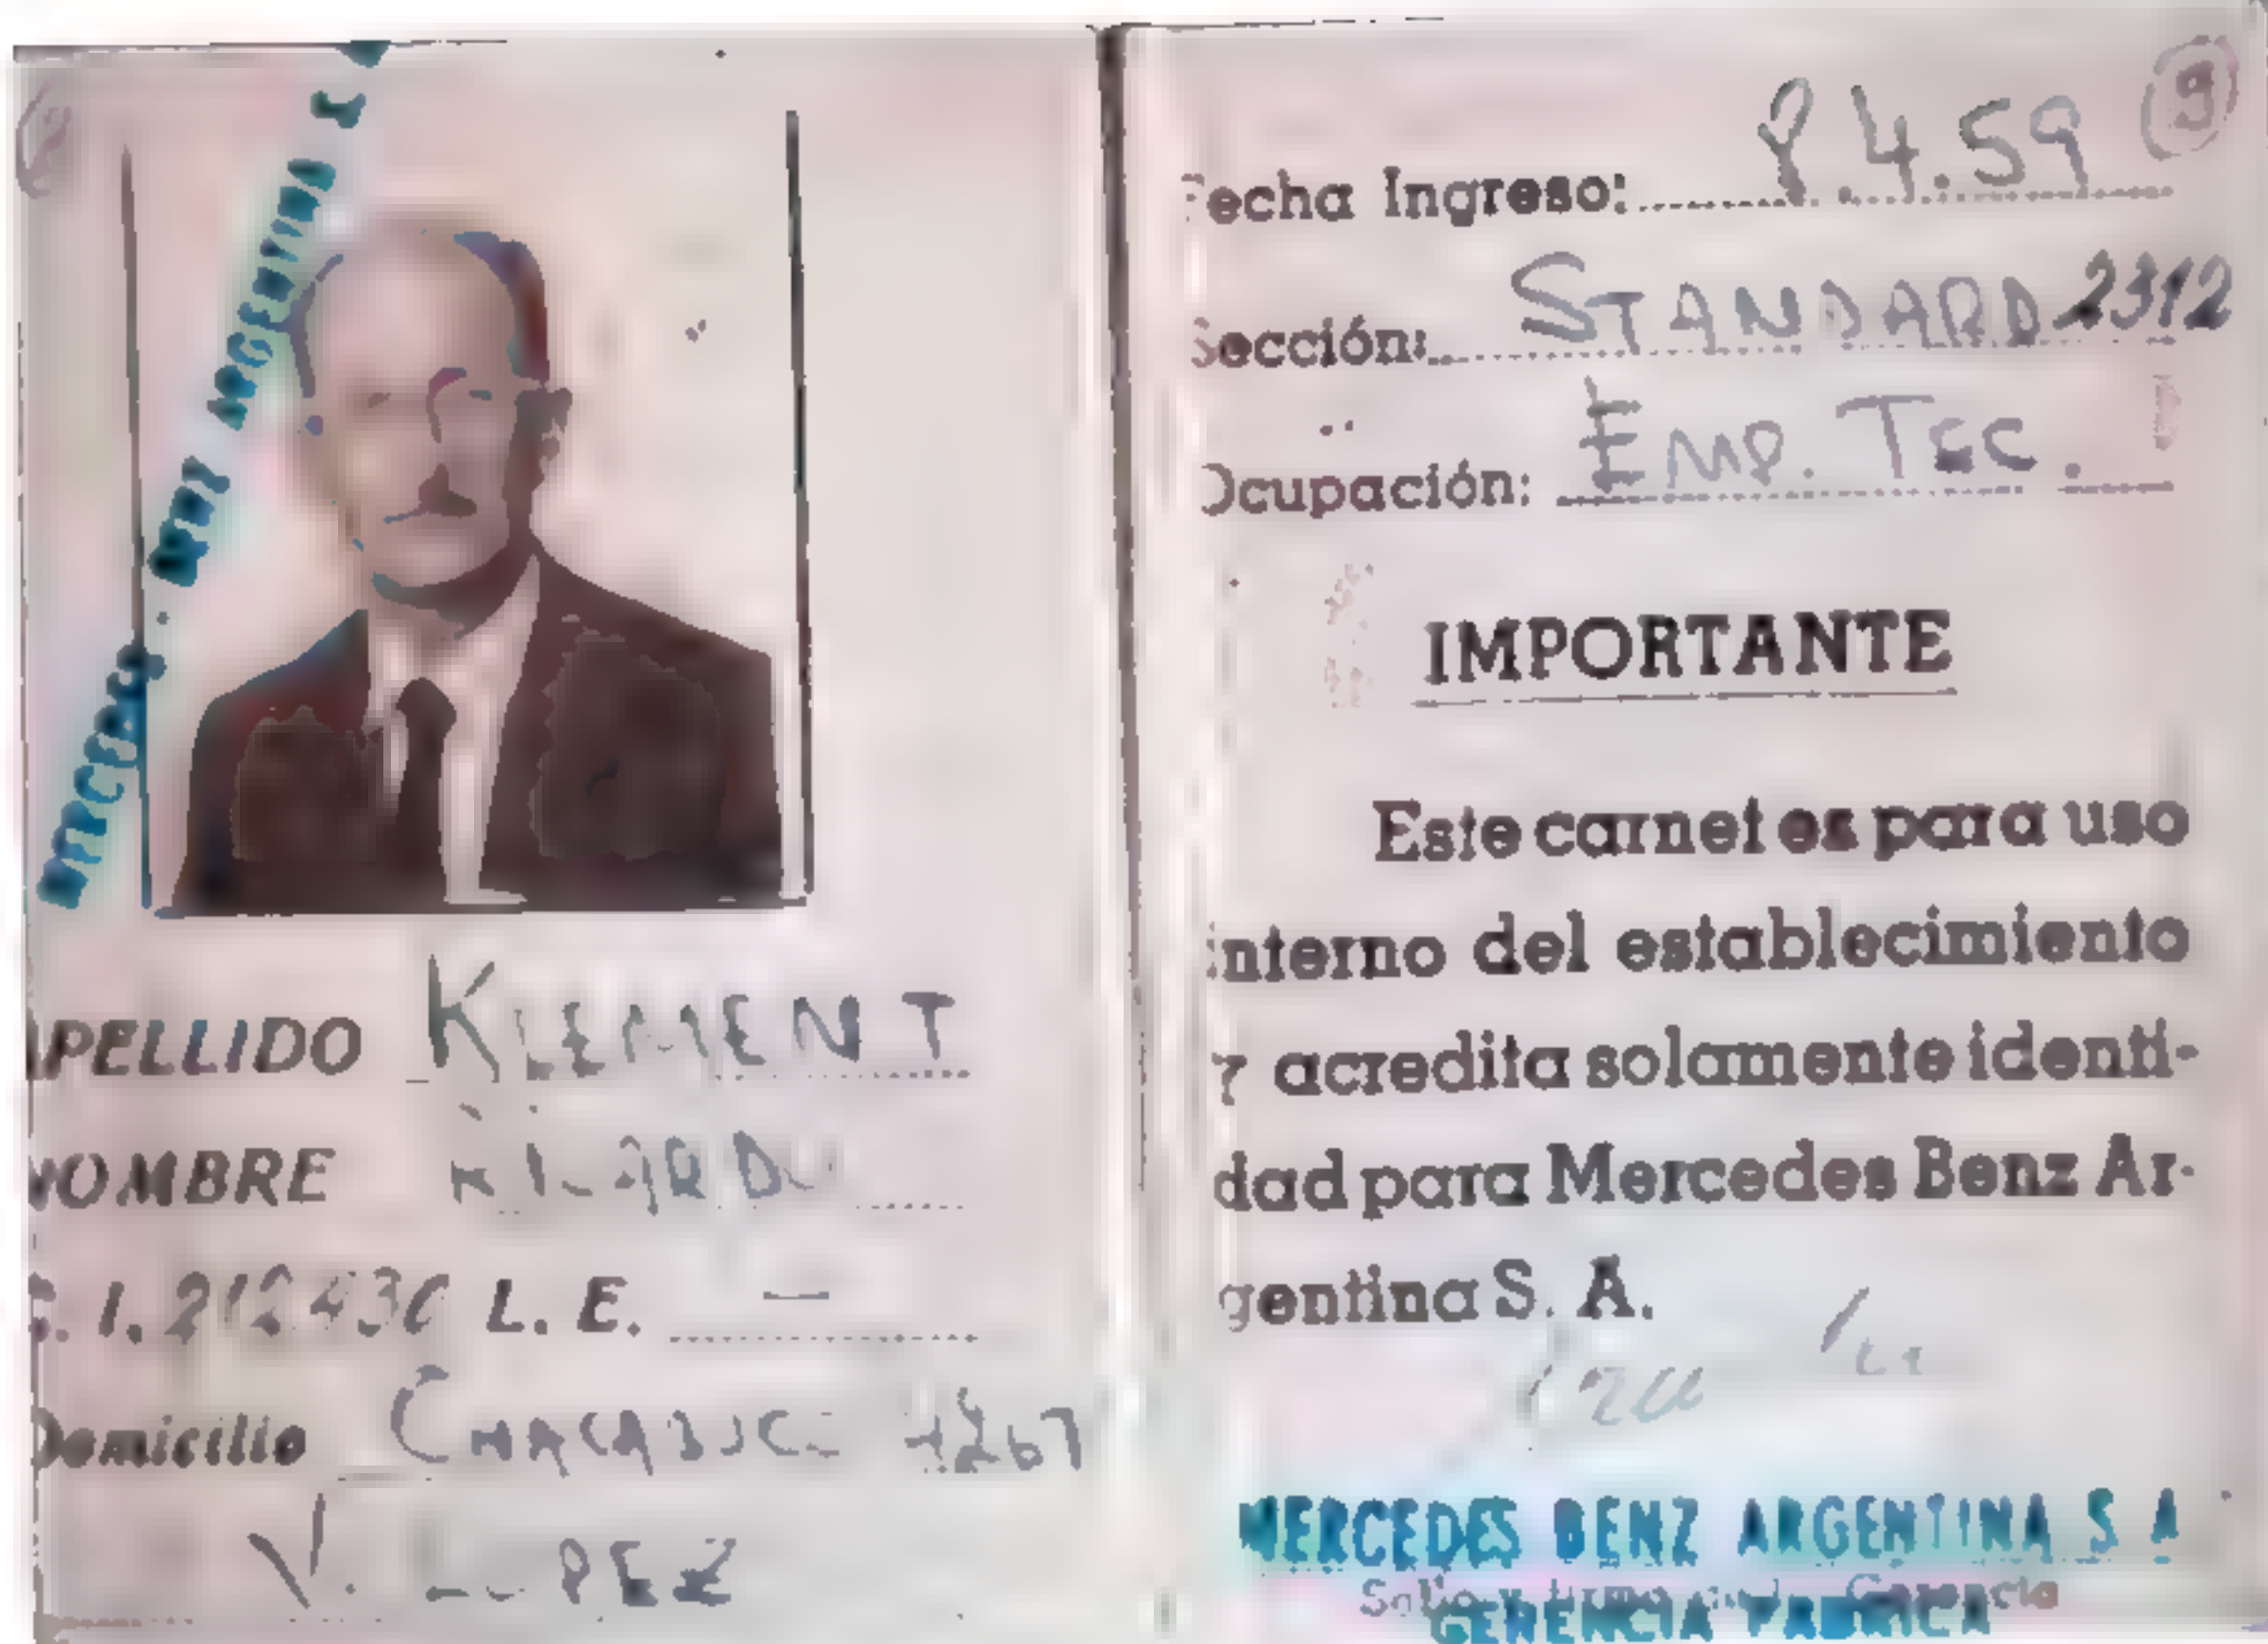 MERCEDES BENZ ARGENTINA S
APELLIDO KLEMENT
NOMBRE RICARDO
C. I. 212430 L. E. —
Domicilio CHACABUCO 4267
V. LOPEZ
9
Fecha Ingreso: 4.59
Sección: STANDARD 2312
Ocupación: EMP. TEC.
IMPORTANTE
Este carnet es para uso
interno del establecimiento
y acredita solamente identi-
dad para Mercedes Benz Ar-
gentina S. A.
MERCEDES BENZ ARGENTINA S A
Sello y firma de la Gerencia
GERENCIA FABRICA